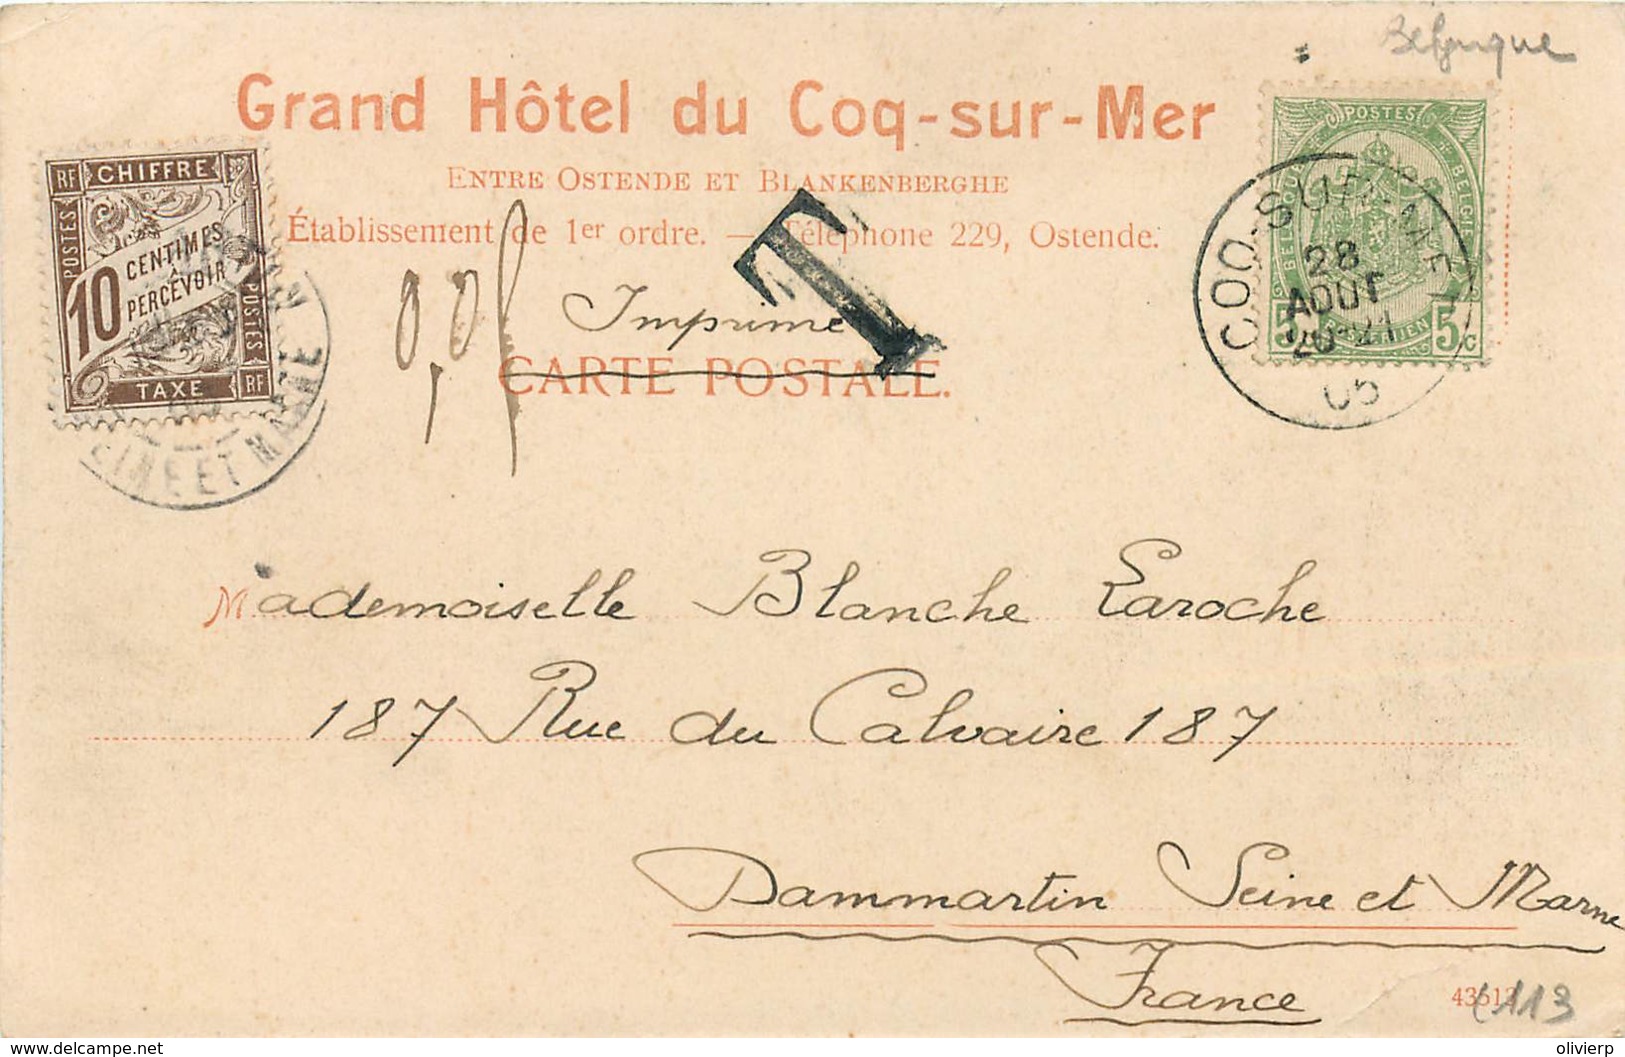 Belgique
Grand Hôtel du Coq-sur-Mer
ENTRE OSTENDE ET BLANKENBERGHE
Établissement de 1er ordre. — Téléphone 229, Ostende.
RF CHIFFRE
POSTES
10 CENTIMES
À
PERCEVOIR
POSTES
TAXE RF
SEINE ET MARNE
T
Imprimé
CARTE POSTALE.
POSTES
BELGIQUE
BELGIE
5 POSTERIJEN 5c
COQ-SUR-MER
28
AOUT
20-21
05
Mademoiselle Blanche Laroche
187 Rue du Calvaire 187
Dammartin Seine et Marne
France
113
delcampe.net
olivierp